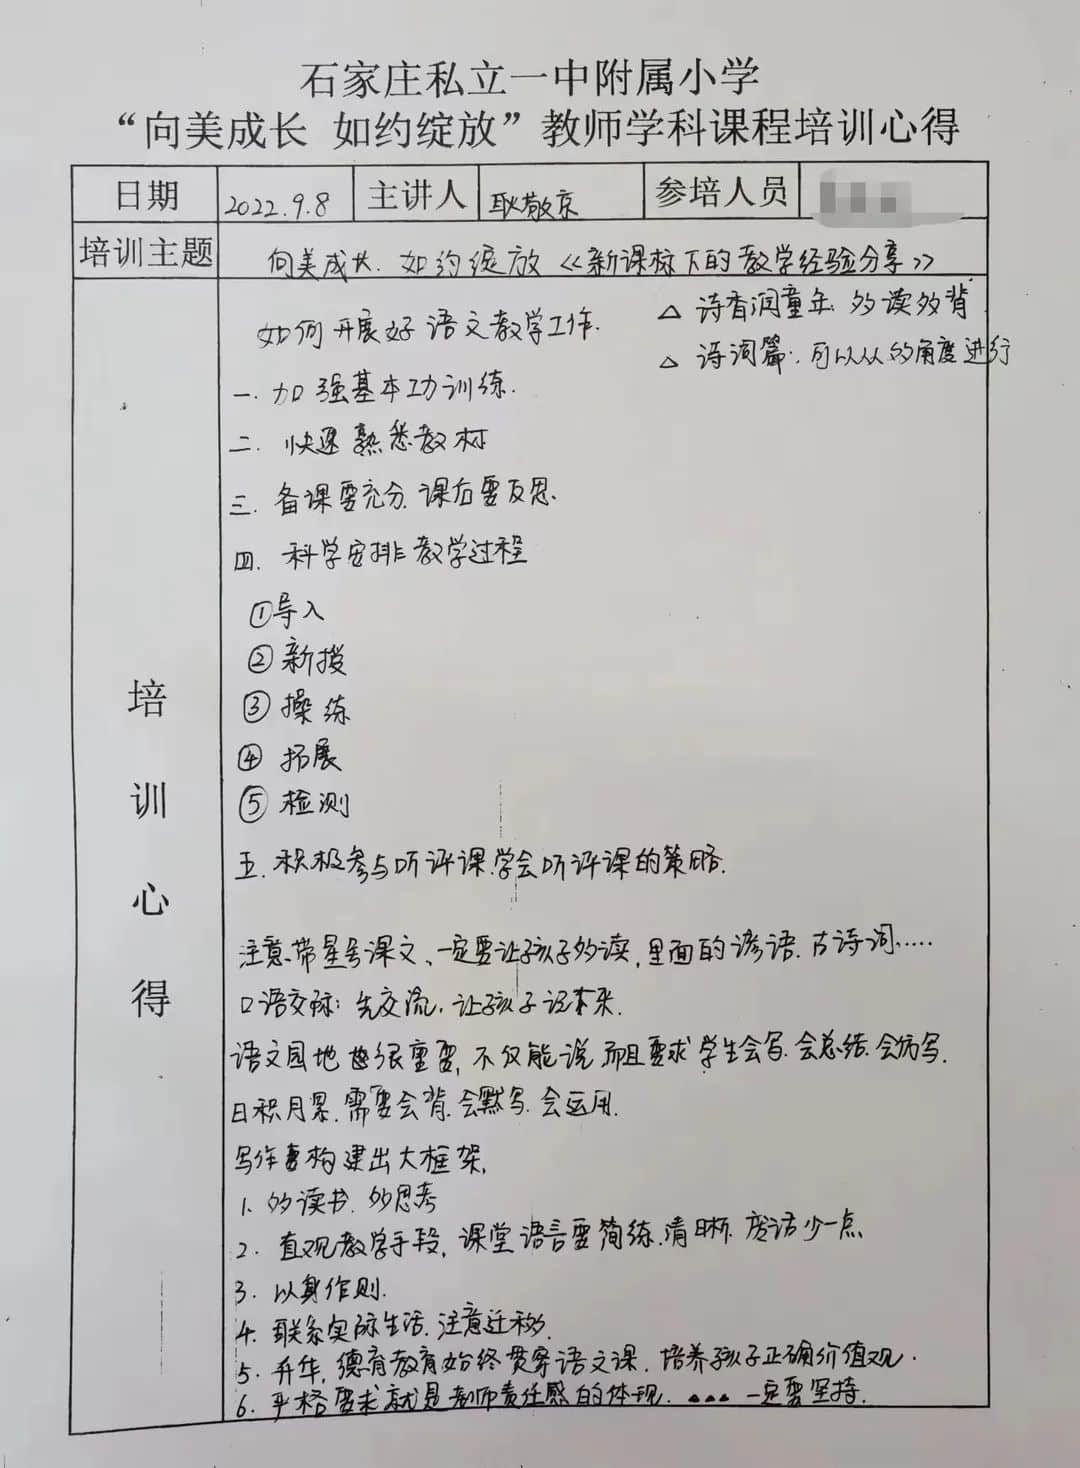 石家庄私立一中附属小学
“向美成长 如约绽放”教师学科课程培训心得
日期 2022.9.8 主讲人 耿敬京 参培人员
培训主题 向美成长.如约绽放《新课标下的教学经验分享》
培训心得
如何开展好语文教学工作.
△ 诗香润童年.多读多背.
△ 诗词篇:可以从的角度进行
一.加强基本功训练.
二.快速熟悉教材
三.备课要充分.课后要反思.
四.科学安排教学过程
①导入
②新授
③操练
④拓展
⑤检测
五.积极参与听评课.学会听评课的策略.
注意.带星号课文、一定要让孩子多读,里面的谚语.古诗词……
口语交际:先交流,让孩子记下来.
语文园地也很重要,不仅能说而且要求学生会写.会总结.会仿写.
日积月累.需要会背.会默写.会运用.
写作要构建出大框架,
1.多读书.多思考
2.直观教学手段,课堂语言要简练.清晰.废话少一点
3.以身作则.
4.联系实际生活.注意迁移.
5.升华,德育教育始终贯穿语文课.培养孩子正确价值观.
6.严格要求就是老师责任感的体现.▲▲▲ 一定要坚持.